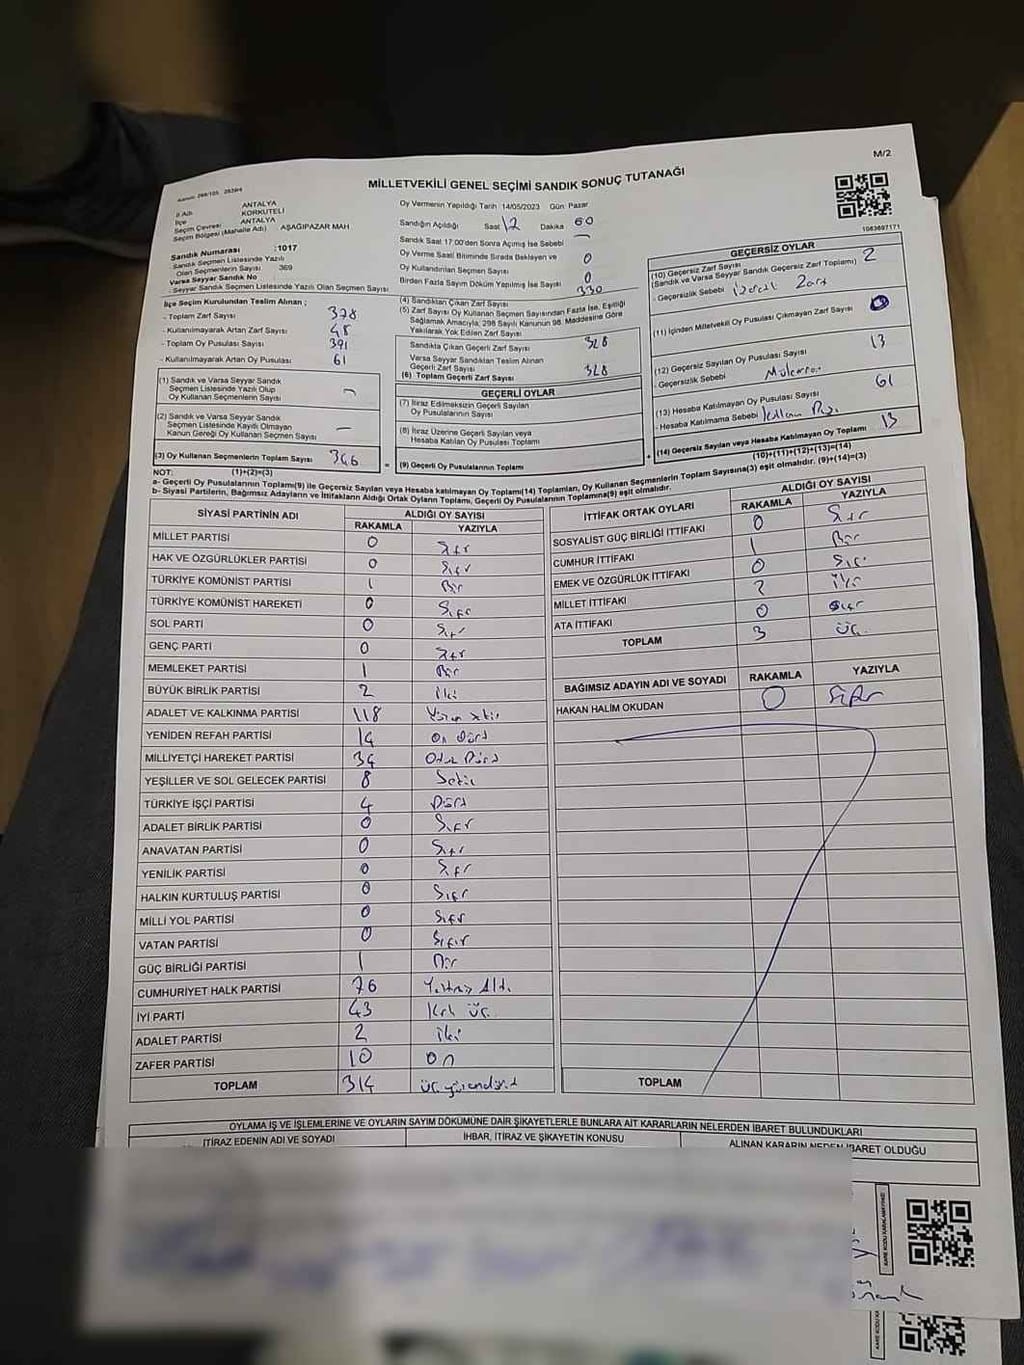 M/2
MİLLETVEKİLİ GENEL SEÇİMİ SANDIK SONUÇ TUTANAĞI
1083697171
İl Adı ANTALYA
İlçe KORKUTELİ
Seçim Çevresi ANTALYA
Seçim Bölgesi (Mahalle Adı) AŞAĞIPAZAR MAH
Sandık Numarası :1017
Sandık Seçmen Listesinde Yazılı
Olan Seçmenlerin Sayısı 369
Varsa Seyyar Sandık No
- Seyyar Sandık Seçmen Listesinde Yazılı Olan Seçmen Sayısı
Oy Vermenin Yapıldığı Tarih :14/05/2023 Gün: Pazar
Sandığın Açıldığı Saat 17 Dakika
Sandık Saat 17:00'den Sonra Açılmış İse Sebebi —
Oy Verme Saati Bitiminde Sırada Bekleyen ve 0
Oy Kullandırılan Seçmen Sayısı
Birden Fazla Sayım Döküm Yapılmış İse Sayısı 0
İlçe Seçim Kurulundan Teslim Alınan ;
- Toplam Zarf Sayısı 378
- Kullanılmayarak Artan Zarf Sayısı 48
- Toplam Oy Pusulası Sayısı 391
- Kullanılmayarak Artan Oy Pusulası 61
(1) Sandık ve Varsa Seyyar Sandık
Seçmen Listesinde Yazılı Olup
Oy Kullanan Seçmenlerin Sayısı
(2) Sandık ve Varsa Seyyar Sandık
Seçmen Listesinde Kayıtlı Olmayan
Kanun Gereği Oy Kullanan Seçmen Sayısı —
(3) Oy Kullanan Seçmenlerin Toplam Sayısı
(4) Sandıktan Çıkan Zarf Sayısı 330
(5) Zarf Sayısı Oy Kullanan Seçmen Sayısından Fazla İse, Eşitliği
Sağlamak Amacıyla, 298 Sayılı Kanunun 98. Maddesine Göre
Yakılarak Yok Edilen Zarf Sayısı
Sandıkta Çıkan Geçerli Zarf Sayısı 328
Varsa Seyyar Sandıktan Teslim Alınan
Geçerli Zarf Sayısı
(6) Toplam Geçerli Zarf Sayısı 328
GEÇERLİ OYLAR
(7) İtiraz Edilmeksizin Geçerli Sayılan
Oy Pusulalarının Sayısı
(8) İtiraz Üzerine Geçerli Sayılan veya
Hesaba Katılan Oy Pusulası Toplamı
= (9) Geçerli Oy Pusulalarının Toplamı +
GEÇERSİZ OYLAR
(10) Geçersiz Zarf Sayısı
(Sandık ve Varsa Seyyar Sandık Geçersiz Zarf Toplamı) 2
- Geçersizlik Sebebi Zarf
(11) İçinden Milletvekili Oy Pusulası Çıkmayan Zarf Sayısı 0
(12) Geçersiz Sayılan Oy Pusulası Sayısı 13
- Geçersizlik Sebebi
(13) Hesaba Katılmayan Oy Pusulası Sayısı 61
- Hesaba Katılmama Sebebi
(14) Geçersiz Sayılan veya Hesaba Katılmayan Oy Toplamı 13
NOT: (1)+(2)=(3) (10)+(11)+(12)+(13)=(14)
a- Geçerli Oy Pusulalarının Toplamı(9) ile Geçersiz Sayılan veya Hesaba katılmayan Oy Toplamı(14) Toplamları, Oy Kullanan Seçmenlerin Toplam Sayısına(3) eşit olmalıdır. (9)+(14)=(3)
b- Siyasi Partilerin, Bağımsız Adayların ve İttifakların Aldığı Ortak Oyların Toplamı, Geçerli Oy Pusulalarının Toplamına(9) eşit olmalıdır.
SİYASİ PARTİNİN ADI ALDIĞI OY SAYISI
RAKAMLA YAZIYLA
MİLLET PARTİSİ 0 Sıfır
HAK VE ÖZGÜRLÜKLER PARTİSİ 0 Sıfır
TÜRKİYE KOMÜNİST PARTİSİ 1 Bir
TÜRKİYE KOMÜNİST HAREKETİ 0 Sıfır
SOL PARTİ 0 Sıfır
GENÇ PARTİ 0 Sıfır
MEMLEKET PARTİSİ 1 Bir
BÜYÜK BİRLİK PARTİSİ 2 İki
ADALET VE KALKINMA PARTİSİ 118
YENİDEN REFAH PARTİSİ 14 On Dört
MİLLİYETÇİ HAREKET PARTİSİ 34 Otuz Dört
YEŞİLLER VE SOL GELECEK PARTİSİ 8 Sekiz
TÜRKİYE İŞÇİ PARTİSİ 4 Dört
ADALET BİRLİK PARTİSİ 0 Sıfır
ANAVATAN PARTİSİ 0 Sıfır
YENİLİK PARTİSİ 0 Sıfır
HALKIN KURTULUŞ PARTİSİ 0 Sıfır
MİLLİ YOL PARTİSİ 0 Sıfır
VATAN PARTİSİ 0 Sıfır
GÜÇ BİRLİĞİ PARTİSİ 1 Bir
CUMHURİYET HALK PARTİSİ 76 Yetmiş Altı
İYİ PARTİ 43 Kırk Üç
ADALET PARTİSİ 2 İki
ZAFER PARTİSİ 10 On
TOPLAM 314 Üç yüz ondört
İTTİFAK ORTAK OYLARI ALDIĞI OY SAYISI
RAKAMLA YAZIYLA
SOSYALİST GÜÇ BİRLİĞİ İTTİFAKI 0 Sıfır
CUMHUR İTTİFAKI 1 Bir
EMEK VE ÖZGÜRLÜK İTTİFAKI 0 Sıfır
MİLLET İTTİFAKI 2 İki
ATA İTTİFAKI 0 Sıfır
TOPLAM 3 Üç
BAĞIMSIZ ADAYIN ADI VE SOYADI RAKAMLA YAZIYLA
HAKAN HALİM OKUDAN 0 Sıfır
TOPLAM
OYLAMA İŞ VE İŞLEMLERİNE VE OYLARIN SAYIM DÖKÜMÜNE DAİR ŞİKAYETLERLE BUNLARA AİT KARARLARIN NELERDEN İBARET BULUNDUKLARI
İTİRAZ EDENİN ADI VE SOYADI İHBAR, İTİRAZ VE ŞİKAYETİN KONUSU ALINAN KARARIN NEDEN İBARET OLDUĞU
KARE KODU KARALAMAYINIZ
KARE KODU